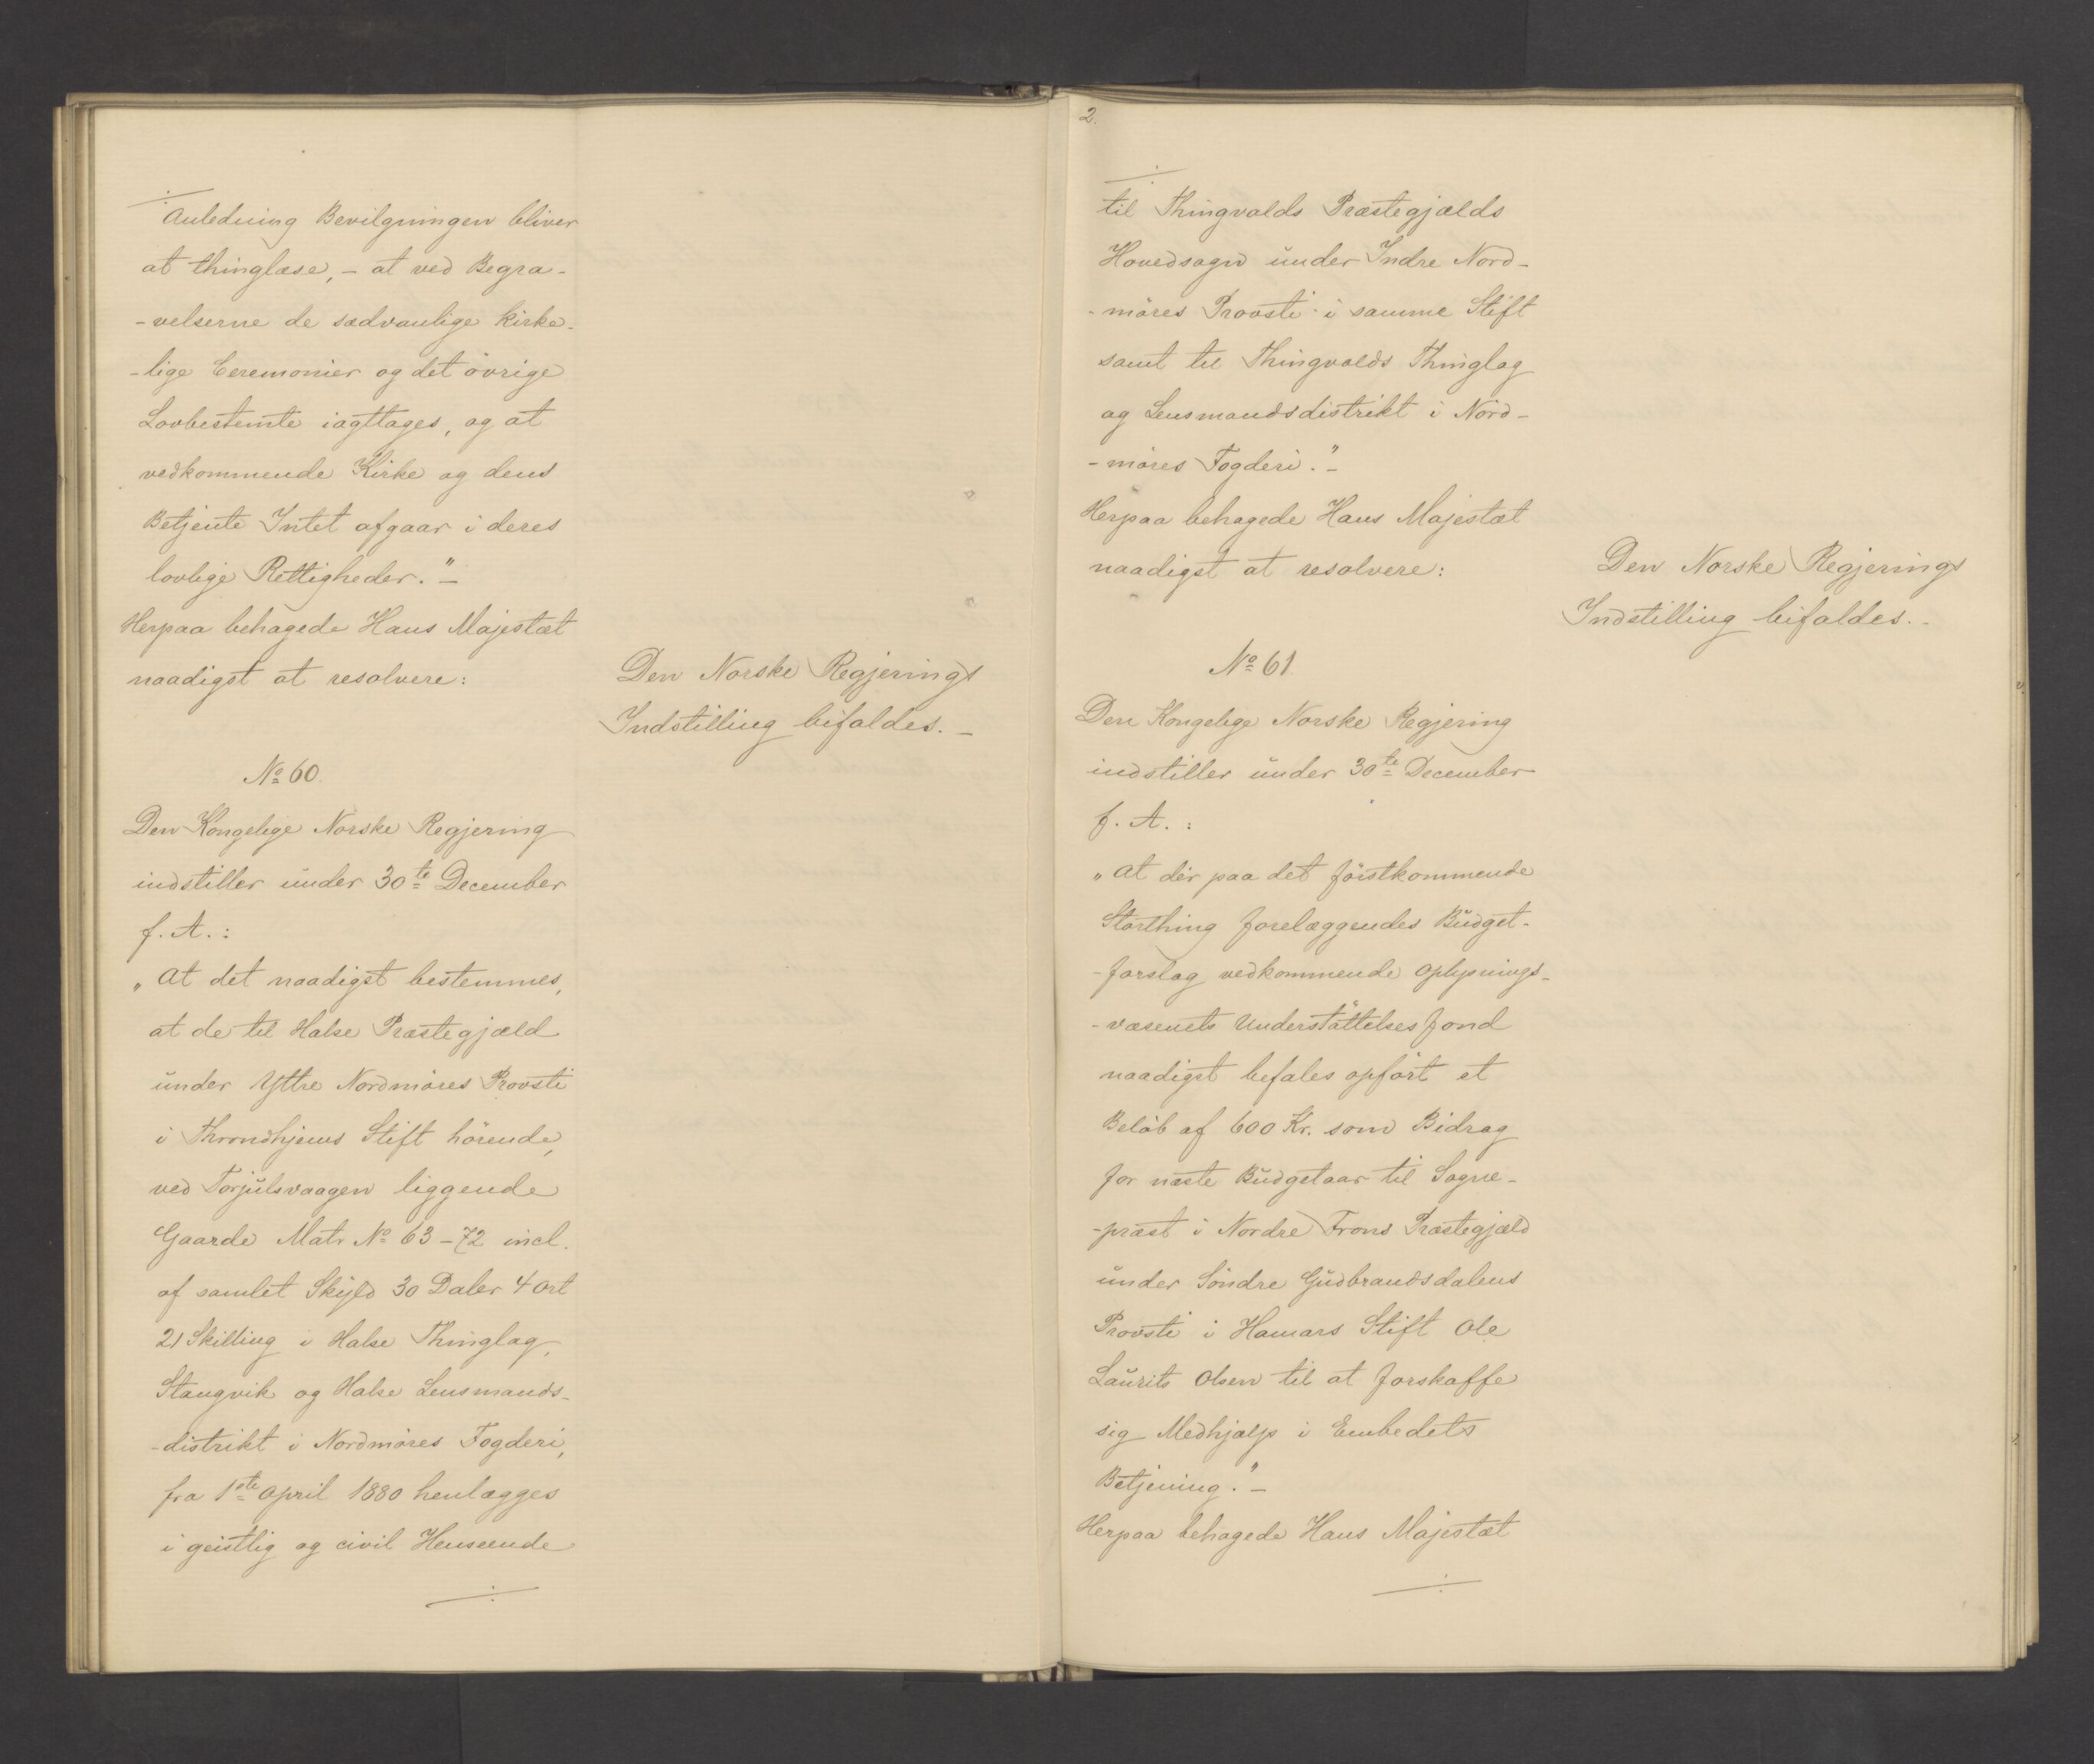 Anledning Bevilgningen bliver
at thinglæse, – at ved Begra-
-velserne de sædvanlige kirke-
-lige Ceremonier og det övrige
Lovbestemte iagttages, og at
vedkommende Kirke og dens
Betjente Intet afgaar i deres
lovlige Rettigheder."–
Herpaa behagede Hans Majestæt
naadigst at resolvere:
Den Norske Regjerings
Indstilling bifaldes. –
No 60.
Den Kongelige Norske Regjering
indstiller under 30te December
f. A.:
„At det naadigst bestemmes,
at de til Halse Præstegjæld
under Yttre Nordmöres Provsti
i Throndhjems Stift hörende,
ved Torjulsvaagen liggende
Gaarde Matr No 63–72 incl.
af samlet Skyld 30 Daler 4 Ort
21 Skilling i Halse Thinglag,
Stangvik og Halse Lensmands-
-distrikt i Nordmöres Fogderi,
fra 1ste April 1880 henlægges
i geistlig og civil Henseende
2.
til Thingvolds Præstegjælds
Hovedsogn under Indre Nord-
-möres Provsti i samme Stift
samt til Thingvolds Thinglag
og Lensmandsdistrikt i Nord-
-möres Fogderi."–
Herpaa behagede Hans Majestæt
naadigst at resolvere:
Den Norske Regjerings
Indstilling bifaldes. –
No 61
Den Kongelige Norske Regjering
indstiller under 30te December
f. A.:
„At der paa det förstkommende
Storthing forelæggendes Budget-
-forslag vedkommende Oplysnings-
-væsenets Understöttelsesfond
naadigst befales opfört et
Belöb af 600 Kr. som Bidrag
for næste Budgetaar til Sogne-
-præst i Nordre Frons Præstegjæld
under Söndre Gudbrandsdalens
Provsti i Hamars Stift Ole
Laurits Olsen til at forskaffe
sig Medhjælp i Embedets
Betjening."–
Herpaa behagede Hans Majestæt